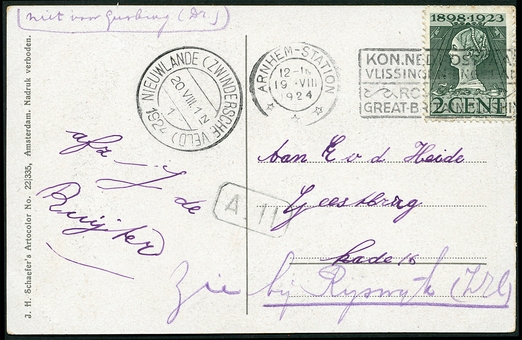 niet voor Gersbrug (Dr.)
1898-1923
2 CENT
NIEUWLANDE (ZWINDERSCHE VELD)
20 VIII 1 N
1924
ARNHEM-STATION
12-1N
19 VIII
1924
KON. NED. POST
VLISSINGEN
GREAT-BR
Aan E v d Heide
Geestbrug
kade 16
Zie bij Ryswyk (Z.H.)
afz. J de
Ruijter
A.11
J. H. Schaefer's Artocolor No. 22/335, Amsterdam. Nadruk verboden.